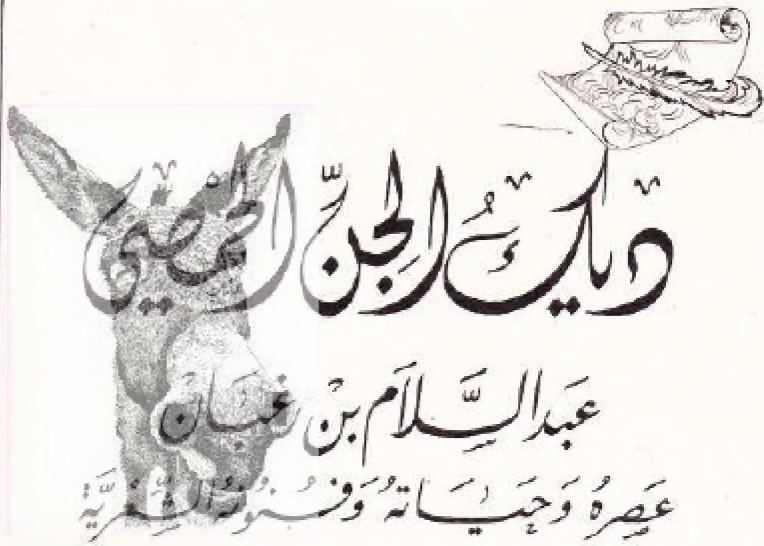 ديكُ الجِنّ الحمصيّ
عَبدالسَّلاَم بن رغبَان
عَصرهُ وَحيَاتهُ وَفُنُونُهُ الشِّعْريَّة